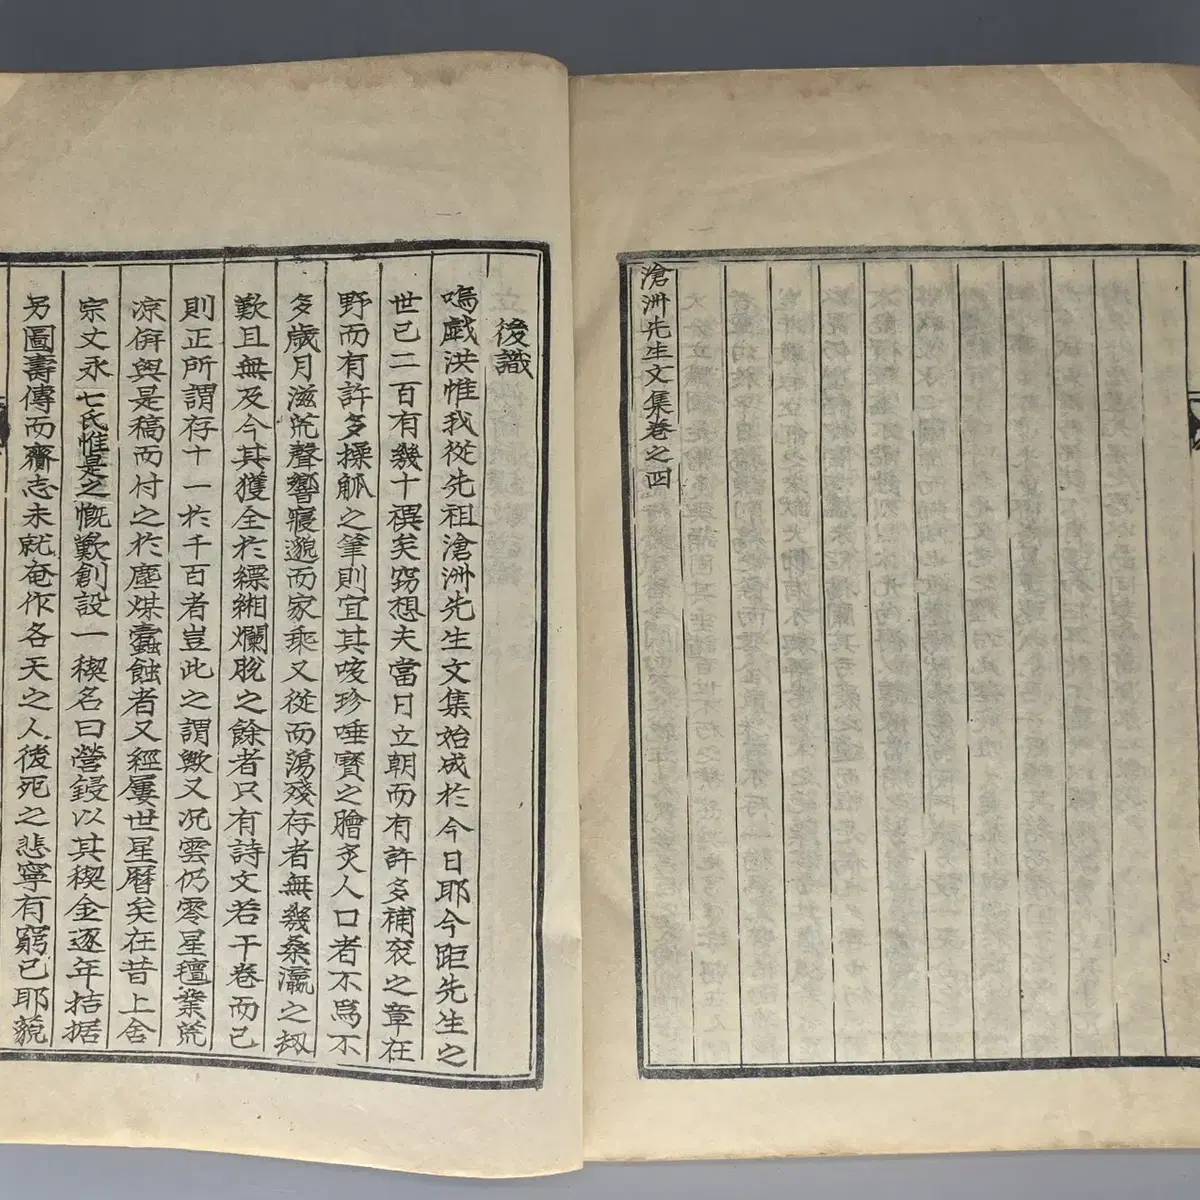 滄洲先生文集卷之四
後識
嗚戱洪惟我從先祖滄洲先生文集始成於今日耶今距先生之
世已二百有幾十禩矣竊想夫當日立朝而有許多補衮之章在
野而有許多操觚之筆則宜其咳珍唾寶之膾炙人口者不爲不
多歲月滋荒聲響寢邈而家乘又從而蕩殘存者無幾桑瀛之刼
歎且無及今其獲全於縹緗爛脫之餘者只有詩文若干卷而已
則正所謂存十一於千百者豈此之謂歟又況雲仍零星㐮業荒
凉倂與是稿而付之於塵煤蠹蝕者又經屢世星曆矣在昔上舍
宗文永七氏惟是之慨歎創設一稧名曰營鋟以其稧金逐年拮据
另圖壽傳而齎志未就奄作各天之人後死之悲寧有窮已耶藐